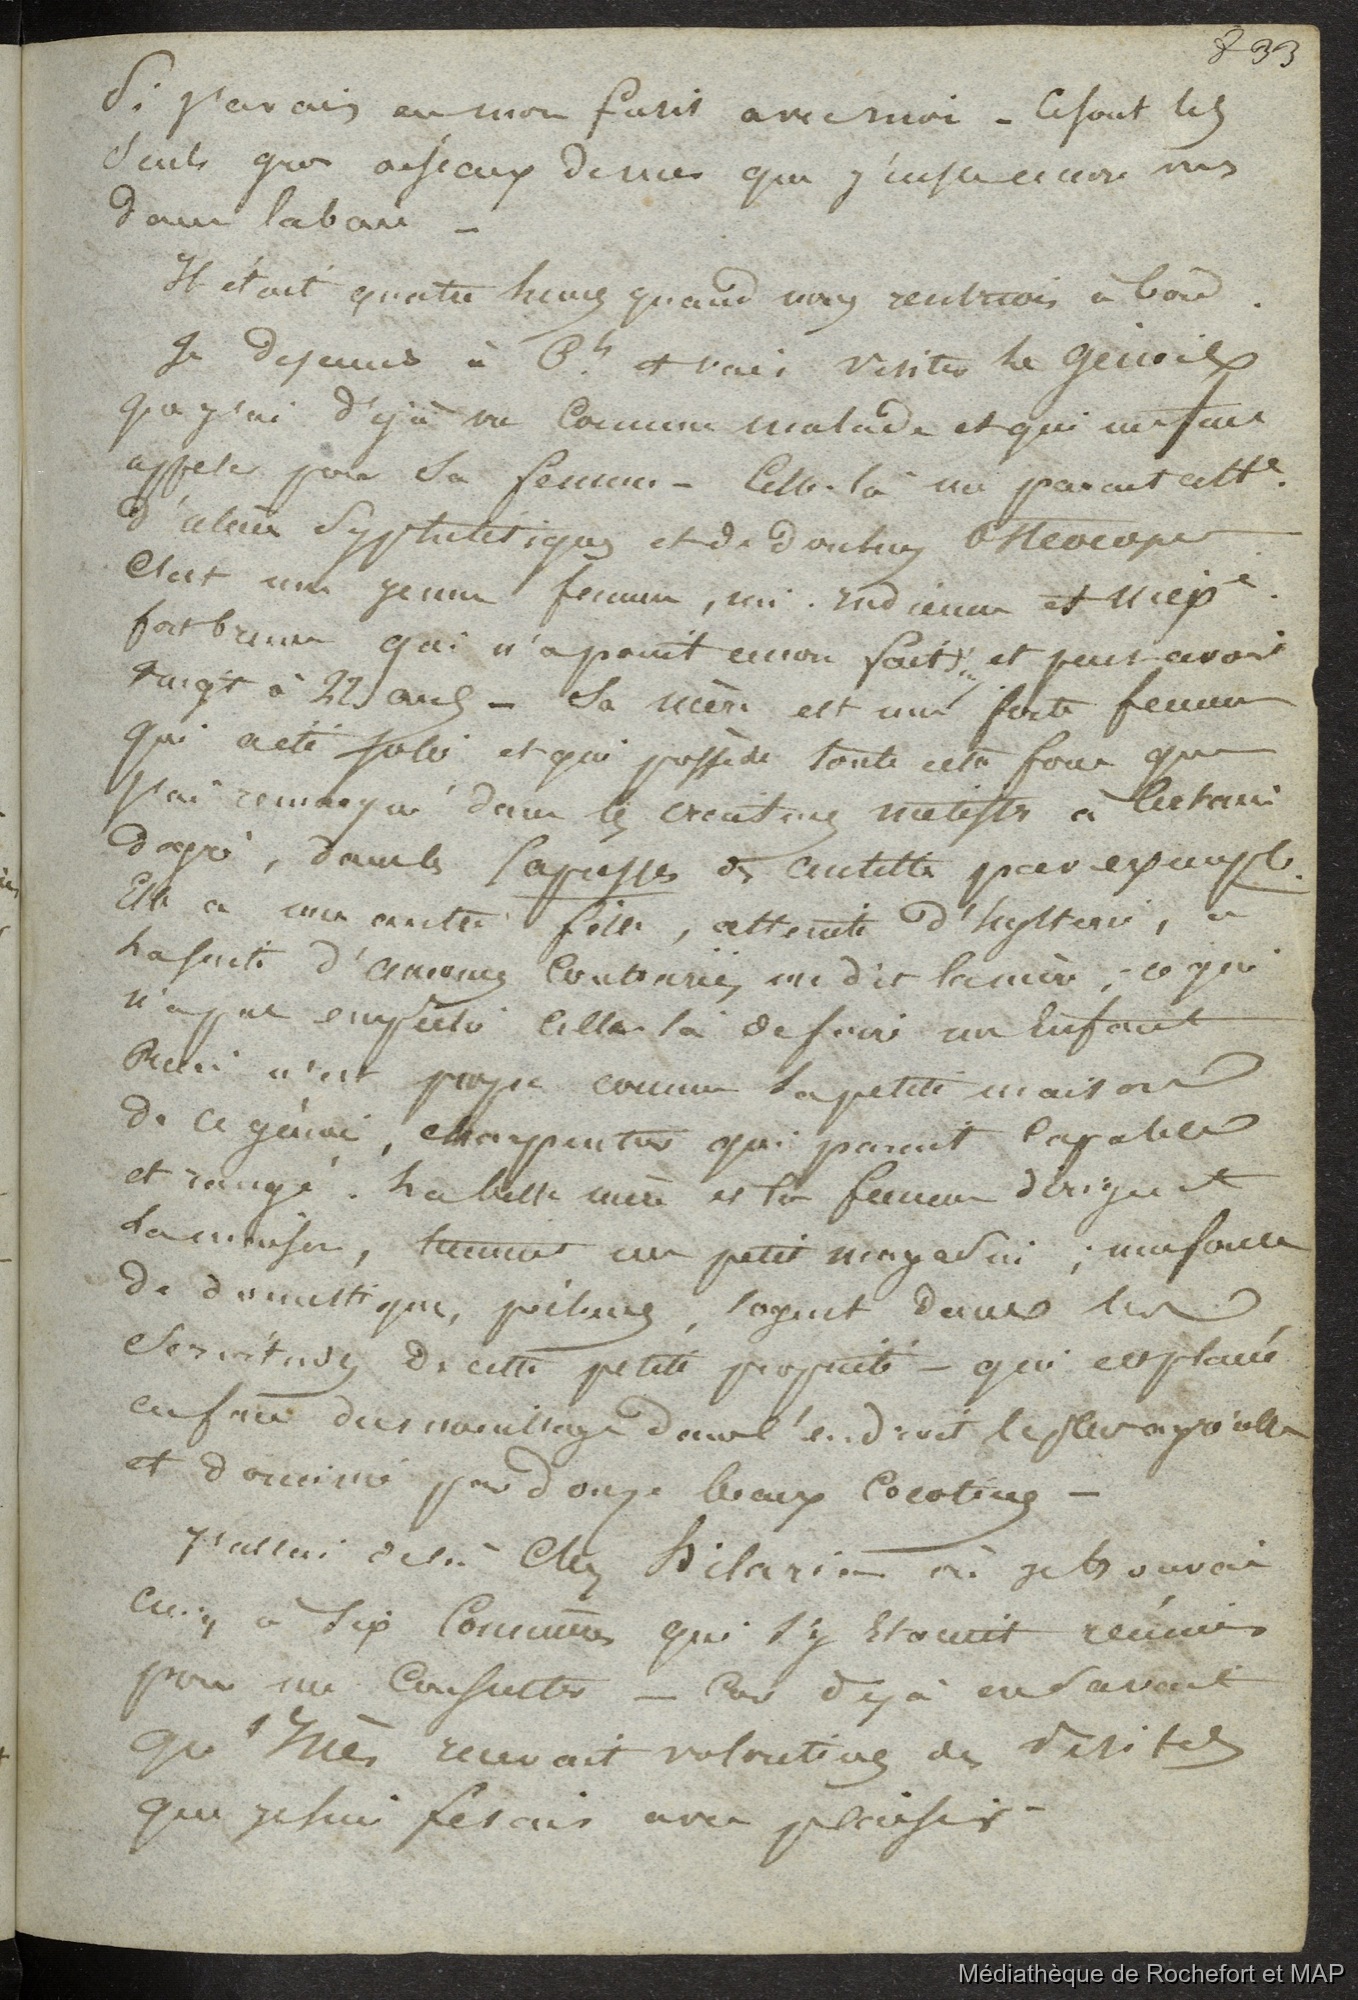 833
Si j'avais eu mon fusil avec moi - Ce sont les
seuls gros oiseaux de mer que j'eusse encore vus
dans la baie -
Il était quatre heures quand nous rentrions à bord.
Je dejeunes à 8.h et vais visiter le Génois
que j'ai déjà vu comme malade et qui me fait
appeler pour sa femme - Celle-là me parait att.e
d'ulcère syphilitiques et de douleurs Osteocopes
C'est une jeune femme, mi. indienne et
fort brune qui n'a point encore fait et peut avoir
vingt à 22 ans - Sa mère est une forte femme
qui a été jolie et qui possède toute cette que
j'ai remarqué dans les creatures metisses à certain
degré, dans les Capresses des Antilles par exemple.
Elle a une autre fille, atteinte d'hysterie, à
la suite d'amours contrariés, me dit la mère, - ce qui
n'a pas empêché celle-là de faire un Enfant
Rien n'est propre comme la petite maison
de ce génois, charpentier qui parait capable
et rangé. La belle mère et la femme dirigent
la maison, tiennent un petit magasin ;
de domestiques, pêcheurs, logent dans les
servitudes de cette petite propriété - qui est placée
en face du mouillage dans l'endroit le plus agréable
et dominé par douze beaux Cocotiers -
J'allai de là Chez Hilario où je trouvai
cinq à six Commères qui s'y étaient réunies
pour me consulter - car déjà on savait
qu'Inès recevait volontiers des visites
que je lui fesais avec plaisir -
Médiathèque de Rochefort et MAP